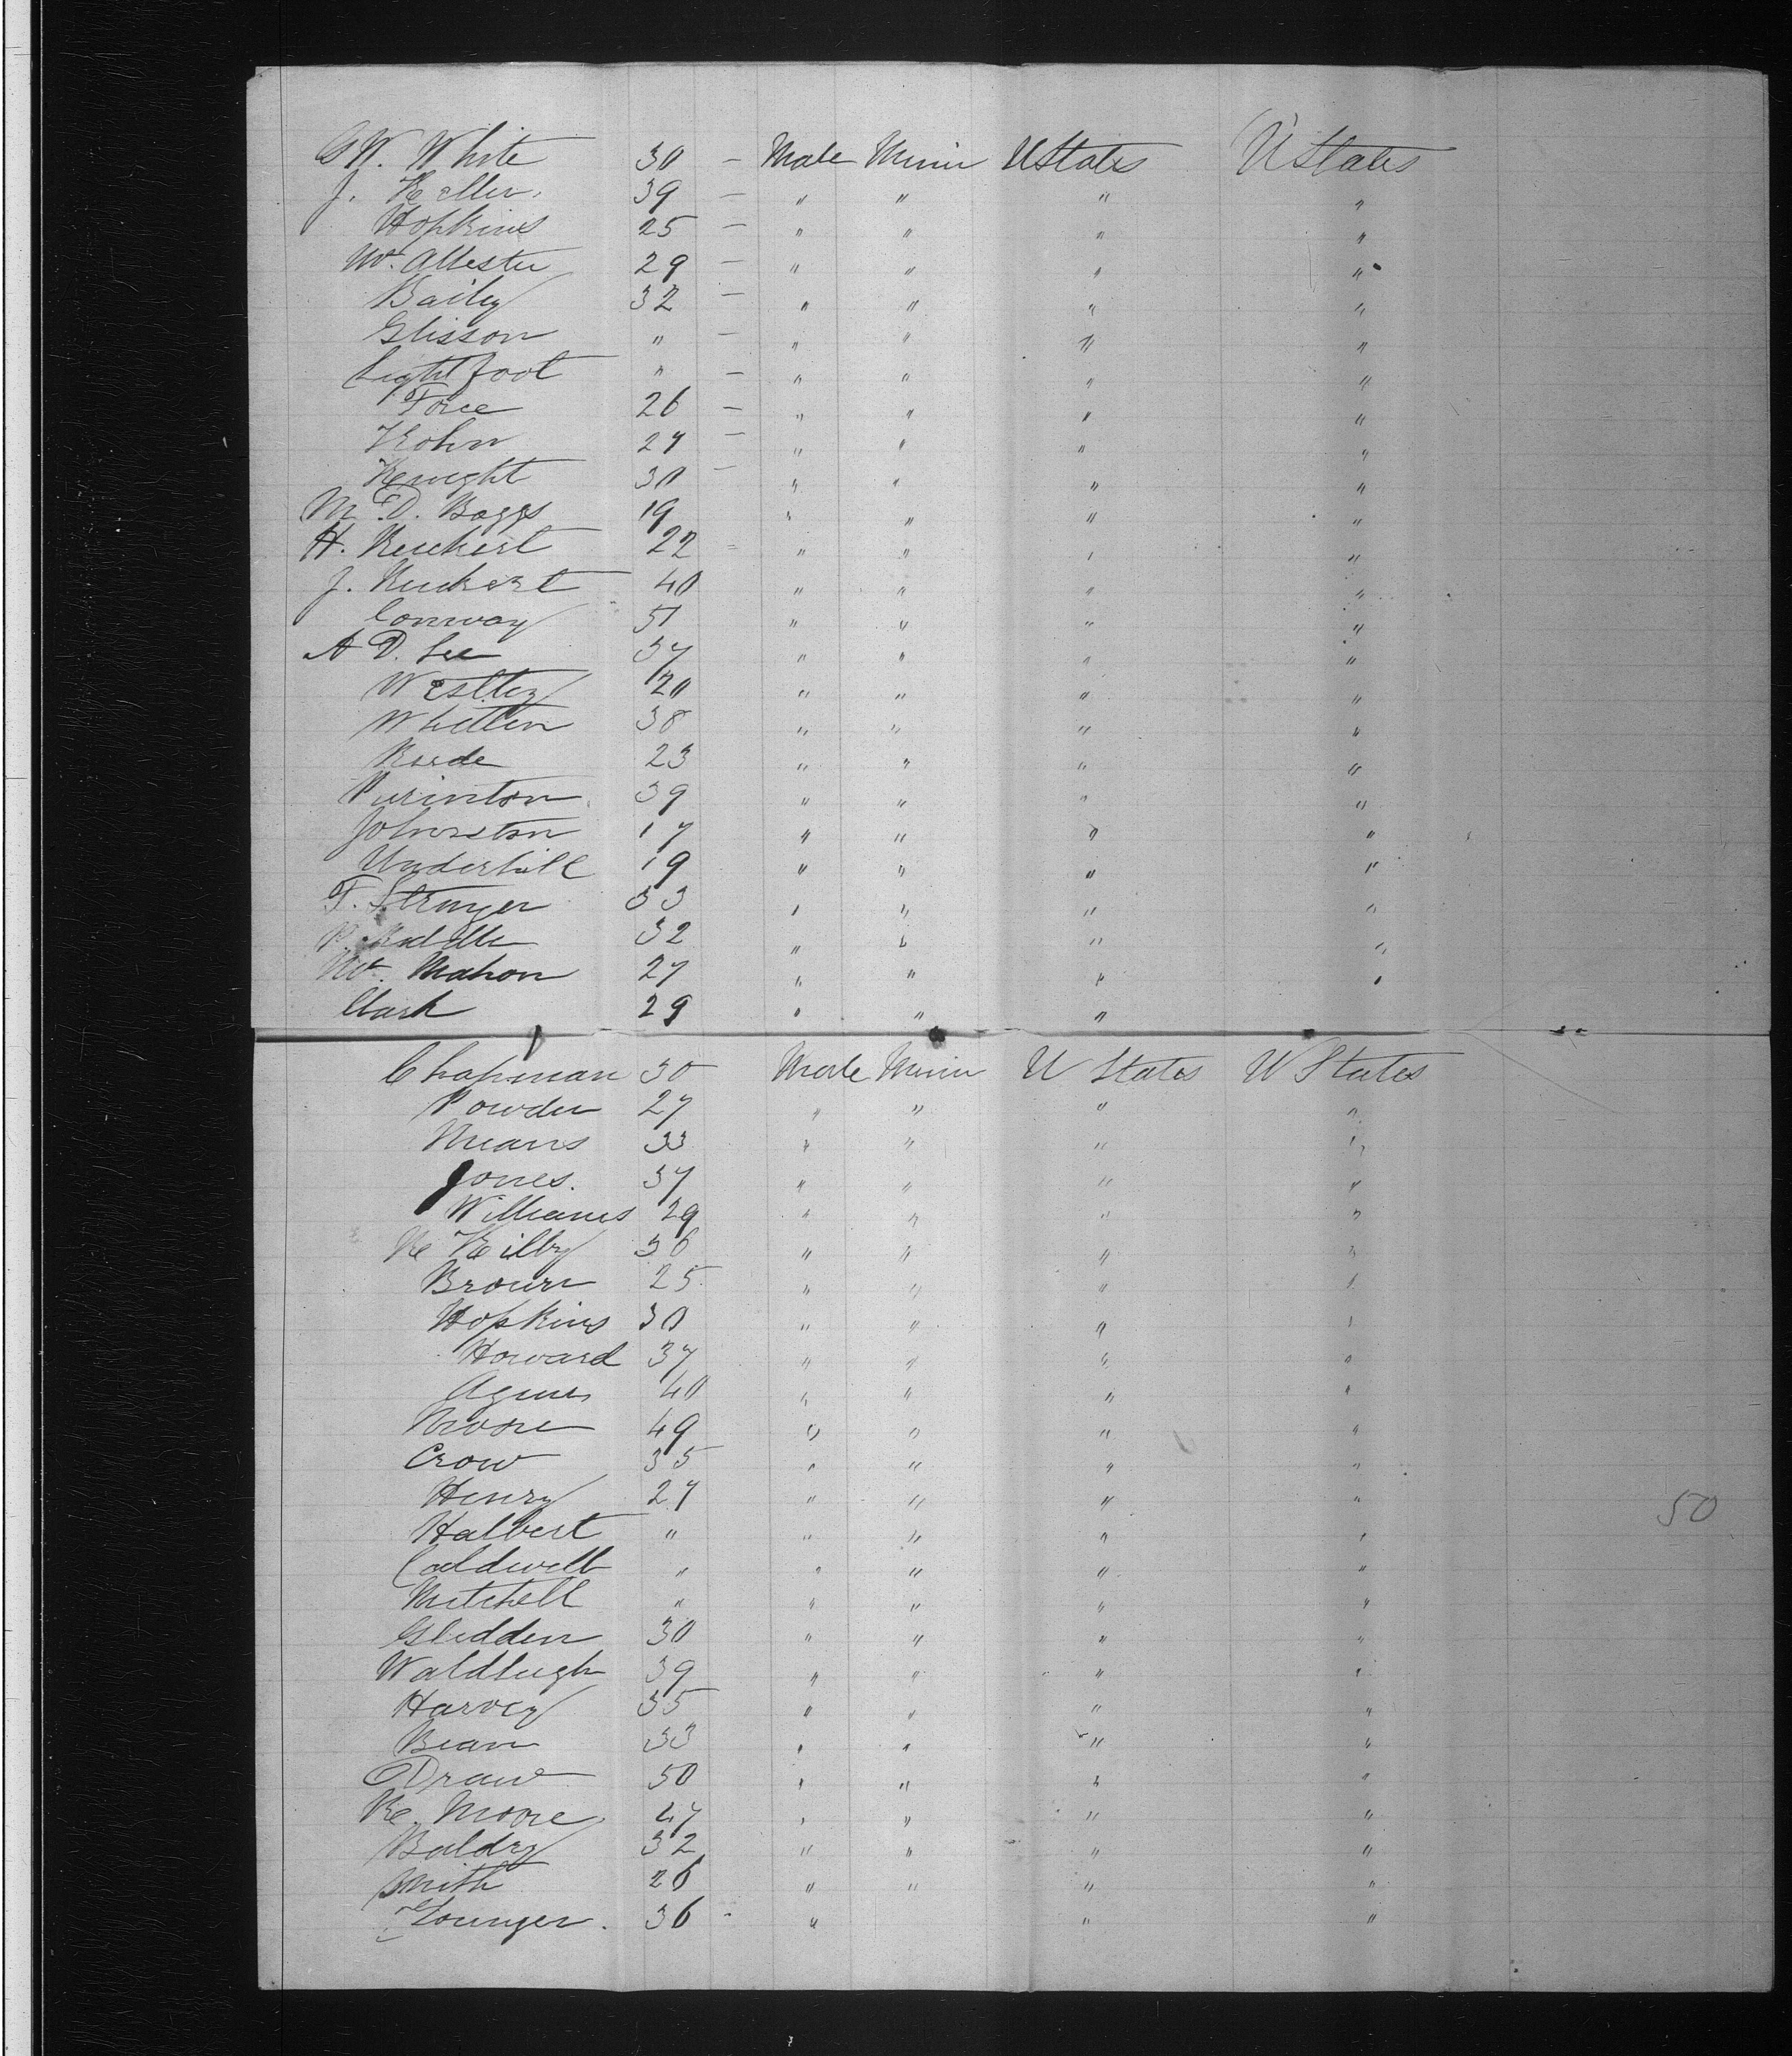 GW. White 30 — Male Miner UStates UStates
J. Keller. 39 — " " " "
Hopkins 25 — " " " "
Mc. Allester 29 — " " " "
Baily 32 — " " " "
Glisson " — " " " "
Lightfoot " — " " " "
Force 26 — " " " "
Kohn 27 — " " " "
Knight 30 — " " " "
M. D. Boggs 19 " " " "
H. 22 " " " "
J. 40 " " " "
Conway 51 " " " "
A D. Lee 37 " " " "
Westley 20 " " " "
38 " " " "
23 " " " "
Purinton 39 " " " "
Johnston 17 " " " "
Underhill 19 " " " "
F. 33 " " " "
32 " " " "
Mc. Mahon 27 " " " "
Clark 29 " " "
Chapman 30 Male Miner U States U States
Powder 27 " " " "
Means 33 " " " "
Jones. 37 " " " "
Williams 29 " " " "
Kilby 36 " " " "
Brown 25 " " " "
Hopkins 30 " " " "
Howard 37 " " " "
40 " " " "
Moore 49 " " " "
Crow 35 " " " "
Henry 27 " " " "
50
Halbert " " " " "
Caldwell " " " " "
Mitchell " " " " "
Glidden 30 " " " "
39 " " " "
Harvey 35 " " " "
Bean 33 " " " "
Draw 50 " " " "
Moore 47 " " " "
Baldry 32 " " " "
Smith 26 " " " "
Younger. 36 - " " "